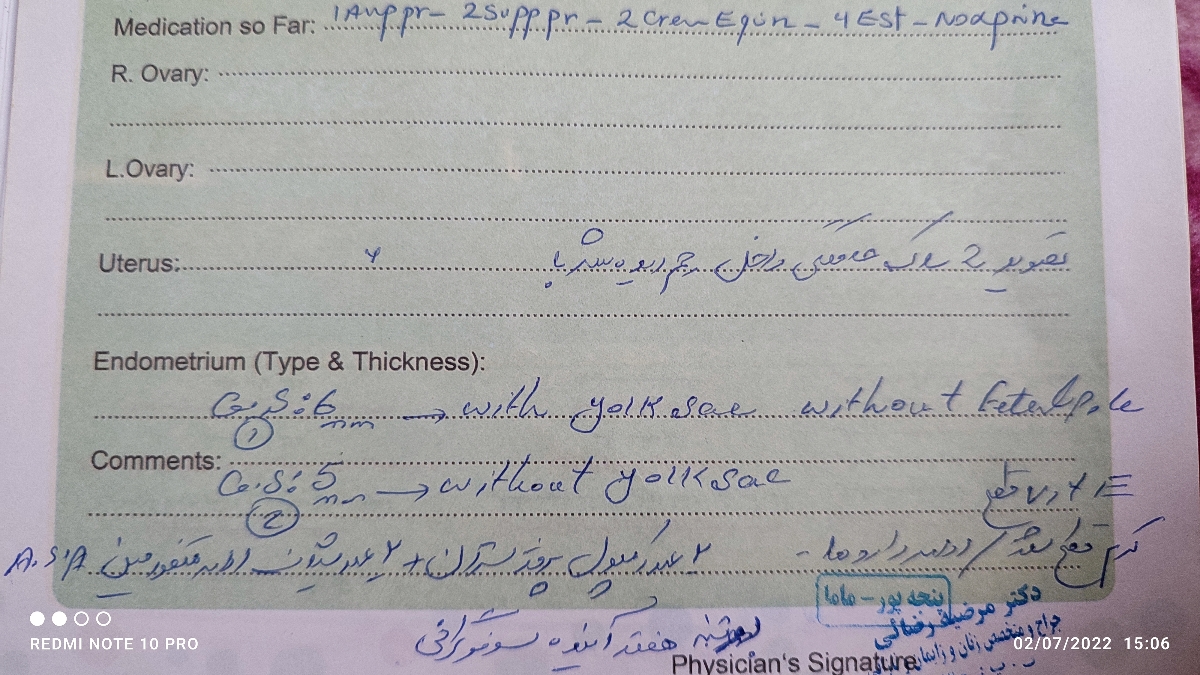 Medication so Far: 1 Amp pr - 2 Supp pr - 2 Crem Equin - 4 Est - Nodaprine
R. Ovary:
L.Ovary:
Uterus: تصویر 2 ساک حاملگی داخل رحم رویت شد
Endometrium (Type & Thickness):
G.S: 6 mm → with yolk sac without Fetal pole
①
Comments:
G.S: 5 mm → without yolk sac
②
Vit E قطع
کرم قطع شد / ادامه داروها -
2 عدد کپسول پروژسترون + 2 عدد شیاف ادامه متفورمین A.S.A
هفته آینده سونوگرافی
پنجه پور - ماما
دکتر مرضیه رضائی
جراح و متخصص زنان و زایمان
Physician's Signature
REDMI NOTE 10 PRO
02/07/2022 15:06